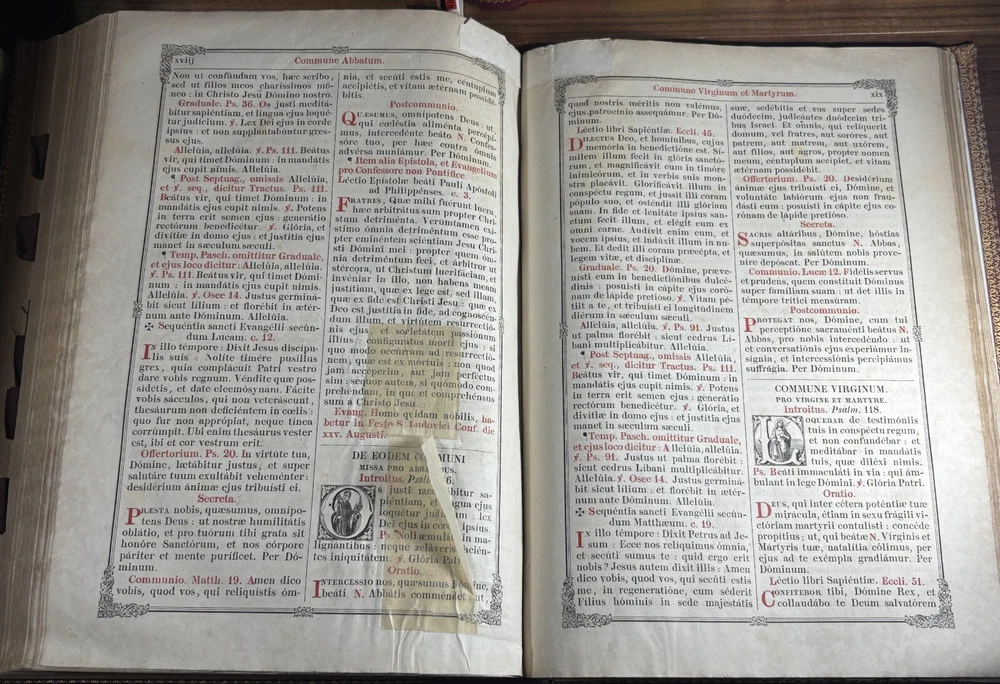 xviij
Commune Abbatum.
Non ut confundam vos, hæc scribo,
sed ut filios meos charissimos mó-
neo : in Christo Jesu Dómino nostro.
Graduale. Ps. 36. Os justi meditá-
bitur sapiéntiam, et lingua ejus loqué-
tur judícium. ℣. Lex Dei ejus in corde
ipsíus : et non supplantabúntur gres-
sus ejus.
Allelúia, allelúia. ℣. Ps. 111. Beátus
vir, qui timet Dóminum : in mandátis
ejus cupit nimis. Allelúia.
¶ Post Septuag., omissis Allelúia,
et ℣. seq., dicitur Tractus. Ps. 111.
Beátus vir, qui timet Dóminum : in
mandátis ejus cupit nimis. ℣. Potens
in terra erit semen ejus : generátio
rectórum benedicétur. ℣. Glória, et
divítiæ in domo ejus : et justítia ejus
manet in sæculum sæculi.
¶ Temp. Pasch. omittitur Graduale,
et ejus loco dicitur : Allelúia, allelúia.
℣. Ps. 111. Beátus vir, qui timet Dómi-
num : in mandátis ejus cupit nimis.
Allelúia. ℣. Osee 14. Justus germiná-
bit sicut lílium : et florébit in ætér-
num ante Dóminum. Allelúia.
✠ Sequéntia sancti Evangélii secún-
dum Lucam. c. 12.
In illo témpore : Dixit Jesus discípu-
lis suis : Nolíte timére pusíllus
grex, quia complácuit Patri vestro
dare vobis regnum. Véndite quæ pos-
sidétis, et date eleemósynam. Fácite
vobis sácculos, qui non veteráscunt,
thesáurum non deficiéntem in cœlis :
quo fur non apprópiat, neque tínea
corrúmpit. Ubi enim thesáurus vester
est, ibi et cor vestrum erit.
Offertorium. Ps. 20. In virtúte tua,
Dómine, lætábitur justus, et super
salutáre tuum exultábit veheménter :
desidérium ánimæ ejus tribuísti ei.
Secreta.
Præsta nobis, quæsumus, omnípo-
tens Deus : ut nostræ humilitátis
oblátio, et pro tuórum tibi grata sit
honóre Sanctórum, et nos córpore
páriter et mente puríficet. Per Dó-
minum.
Communio. Matth. 19. Amen dico
vobis, quod vos, qui reliquístis óm-
nia, et secúti estis me, céntuplum
accipiétis, et vitam ætérnam possidé-
bitis.
Postcommunio.
Quæsumus, omnípotens Deus : ut
qui cœléstia aliménta percépi-
mus, intercedénte beáto N. Confes-
sóre tuo, per hæc contra ómnia
advérsa muniámur. Per Dóminum.
¶ Item alia Epistola, et Evangelium
pro Confessore non Pontifice.
Léctio Epístolæ beáti Pauli Apóstoli
ad Philippénses. c. 3.
Fratres, Quæ mihi fuérunt lucra,
hæc arbitrátus sum propter Chri-
stum detriménta. Verúmtamen exí-
stimo ómnia detriméntum esse pro-
pter eminéntem sciéntiam Jesu Chri-
sti Dómini mei : propter quem óm-
nia detriméntum feci, et árbitror ut
stércora, ut Christum lucrifáciam, et
invéniar in illo, non habens meam
justítiam, quæ ex lege est, sed illam,
quæ ex fide est Christi Jesu : quæ ex
Deo est justítia in fide, ad cognoscén-
dum illum, et virtútem resurrectió-
nis ejus, et societátem passiónum
illíus : configurátus morti ejus : si
quo modo occúrram ad resurrectió-
nem, quæ est ex mórtuis : non quod
jam accéperim, aut jam perféctus
sim : sequor autem, si quómodo com-
prehéndam, in quo et comprehénsus
sum a Christo Jesu.
Evang. Homo quidam nóbilis, ha-
betur in Festo S. Ludovici Conf. die
xxv. Augusti.
DE EODEM COMMUNI
MISSA PRO ABBATIBUS.
Introitus. Psalm. 36.
Os justi meditábitur sa-
piéntiam, et lingua ejus
loquétur judícium : lex
Dei ejus in corde ipsíus.
Ps. Noli æmulári in ma-
lignántibus : neque zeláveris facién-
tes iniquitátem. ℣. Glória Patri.
Oratio.
Intercessio nos, quæsumus Dómine,
beáti N. Abbátis comméndet : ut,
Commune Virginum et Martyrum.
xix
quod nostris méritis non valémus,
ejus patrocínio assequámur. Per Dó-
minum.
Léctio libri Sapiéntiæ. Eccli. 45.
Dilectus Deo, et homínibus, cujus
memória in benedictióne est. Sí-
milem illum fecit in glória sanctó-
rum, et magnificávit eum in timóre
inimicórum, et in verbis suis mon-
stra placávit. Glorificávit illum in
conspéctu regum, et jussit illi coram
pópulo suo, et osténdit illi glóriam
suam. In fide et lenitáte ipsíus san-
ctum fecit illum, et elégit eum ex
omni carne. Audívit enim eum, et
vocem ipsíus, et indúxit illum in nu-
bem. Et dedit illi coram præcépta, et
legem vitæ, et disciplínæ.
Graduale. Ps. 20. Dómine, præve-
nísti eum in benedictiónibus dulcé-
dinis : posuísti in cápite ejus coró-
nam de lápide pretióso. ℣. Vitam pé-
tiit a te, et tribuísti ei longitúdinem
diérum in sæculum sæculi.
Allelúia, allelúia. ℣. Ps. 91. Justus
ut palma florébit : sicut cedrus Lí-
bani multiplicábitur. Allelúia.
¶ Post Septuag., omissis Allelúia,
et ℣. seq., dicitur Tractus. Ps. 111.
Beátus vir, qui timet Dóminum : in
mandátis ejus cupit nimis. ℣. Potens
in terra erit semen ejus : generátio
rectórum benedicétur. ℣. Glória, et
divítiæ in domo ejus : et justítia ejus
manet in sæculum sæculi.
¶ Temp. Pasch. omittitur Graduale,
et ejus loco dicitur : Allelúia, allelúia.
℣. Ps. 91. Justus ut palma florébit :
sicut cedrus Líbani multiplicábitur.
Allelúia. ℣. Osee 14. Justus germiná-
bit sicut lílium : et florébit in ætér-
num ante Dóminum. Allelúia.
✠ Sequéntia sancti Evangélii secún-
dum Matthæum. c. 19.
In illo témpore : Dixit Petrus ad Je-
sum : Ecce nos relíquimus ómnia,
et secúti sumus te : quid ergo erit
nobis ? Jesus autem dixit illis : Amen
dico vobis, quod vos, qui secúti estis
me, in regeneratióne, cum séderit
Fílius hóminis in sede majestátis
suæ, sedébitis et vos super sedes
duódecim, judicántes duódecim tri-
bus Israel. Et omnis, qui relíquerit
domum, vel fratres, aut soróres, aut
patrem, aut matrem, aut uxórem,
aut fílios, aut agros, propter nomen
meum, céntuplum accípiet, et vitam
ætérnam possidébit.
Offertorium. Ps. 20. Desidérium
ánimæ ejus tribuísti ei, Dómine, et
voluntáte labiórum ejus non frau-
dásti eum : posuísti in cápite ejus co-
rónam de lápide pretióso.
Secreta.
Sacris altáribus, Dómine, hóstias
superpósitas sanctus N. Abbas,
quæsumus, in salútem nobis prove-
níre depóscat. Per Dóminum.
Communio. Lucæ 12. Fidélis servus
et prudens, quem constítuit Dóminus
super famíliam suam : ut det illis in
témpore trítici mensúram.
Postcommunio.
Protegat nos, Dómine, cum tui
perceptióne sacraménti beátus N.
Abbas, pro nobis intercedéndo : ut
et conversatiónis ejus experiámur in-
sígnia, et intercessiónis percipiámus
suffrágia. Per Dóminum.
COMMUNE VIRGINUM.
PRO VIRGINE ET MARTYRE.
Introitus. Psalm. 118.
Loquebar de testimóniis
tuis in conspéctu regum,
et non confundébar : et
meditábar in mandátis
tuis, quæ diléxi nimis.
Ps. Beáti immaculáti in via : qui ám-
bulant in lege Dómini. ℣. Glória Patri.
Oratio.
Deus, qui inter cétera poténtiæ tuæ
mirácula, étiam in sexu frágili vi-
ctóriam martyrii contulísti : concéde
propítius ; ut, qui beátæ N. Vírginis et
Mártyris tuæ, natalítia cólimus, per
ejus ad te exémpla gradiámur. Per
Dóminum.
Léctio libri Sapiéntiæ. Eccli. 51.
Confitebor tibi, Dómine Rex, et
collaudábo te Deum salvatórem